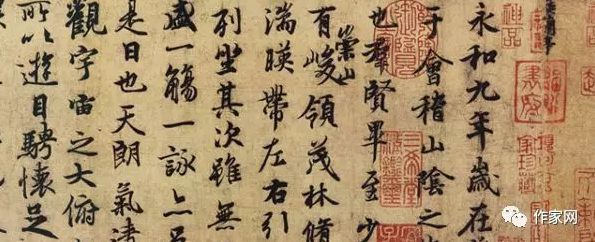 永和九年歲在
于會稽山陰之
也羣賢畢至少
有崇山峻領茂林脩
湍暎帶左右引
列坐其次雖無
盛一觴一詠亦足
是日也天朗氣清
觀宇宙之大俯
所以遊目騁懷足
神品
作家网